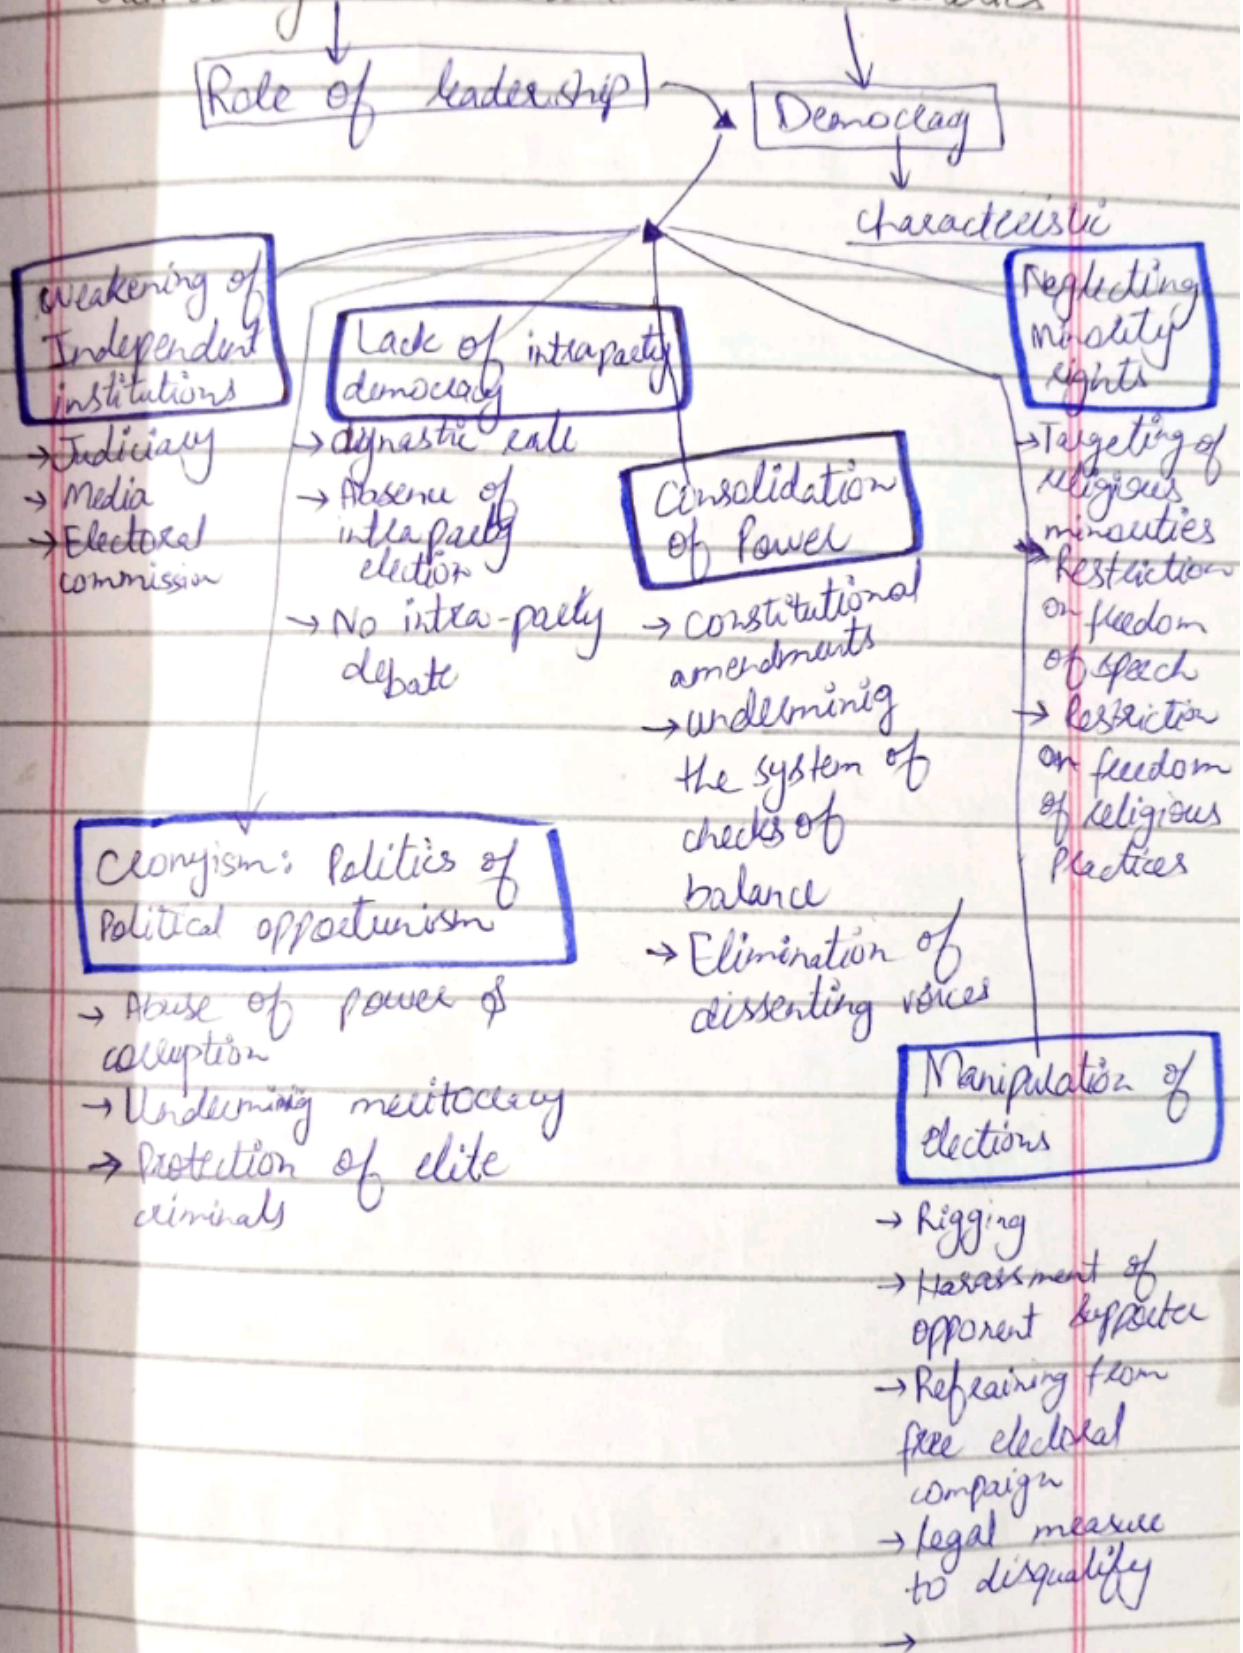 Role of leadership
Democracy
characteristic
Weakening of
Independent
institutions
→ Judiciary
→ Media
→ Electoral
commission
Lack of intraparty
democracy
→ dynastic rule
→ Absence of
intraparty
election
→ No intra-party
debate
Consolidation
of Power
→ constitutional
amendments
→ underminig
the system of
checks of
balance
→ Elimination of
dissenting voices
Neglecting
minority
rights
→ Targeting of
religious
minorities
→ Restriction
on freedom
of speech
→ Restriction
on freedom
of religious
Practices
Cronyism: Politics of
Political opportunism
→ Abuse of power &
corruption
→ Undermining meritocracy
→ Protection of elite
criminals
Manipulation of
elections
→ Rigging
→ Harassment of
opponent supporter
→ Refraining from
free electoral
compaign
→ legal measure
to disqualify
→